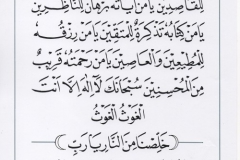 لِلْقَاصِدِينَ يَا مَنْ اٰيَاتُهُ بُرْهَانٌ لِلنَّاظِرِينَ
يَا مَنْ كِتَابُهُ تَذْكِرَةٌ لِلْمُتَّقِينَ يَا مَنْ رِزْقُهُ
لِلْمُطِيعِينَ وَالْعَاصِينَ يَا مَنْ رَحْمَتُهُ قَرِيبٌ
مِنَ الْمُحْسِنِينَ سُبْحَانَكَ لَا اِلٰهَ اِلَّا اَنْتَ
الْغَوْثُ الْغَوْثُ
خَلِّصْنَا مِنَ النَّارِ يَا رَبِّ